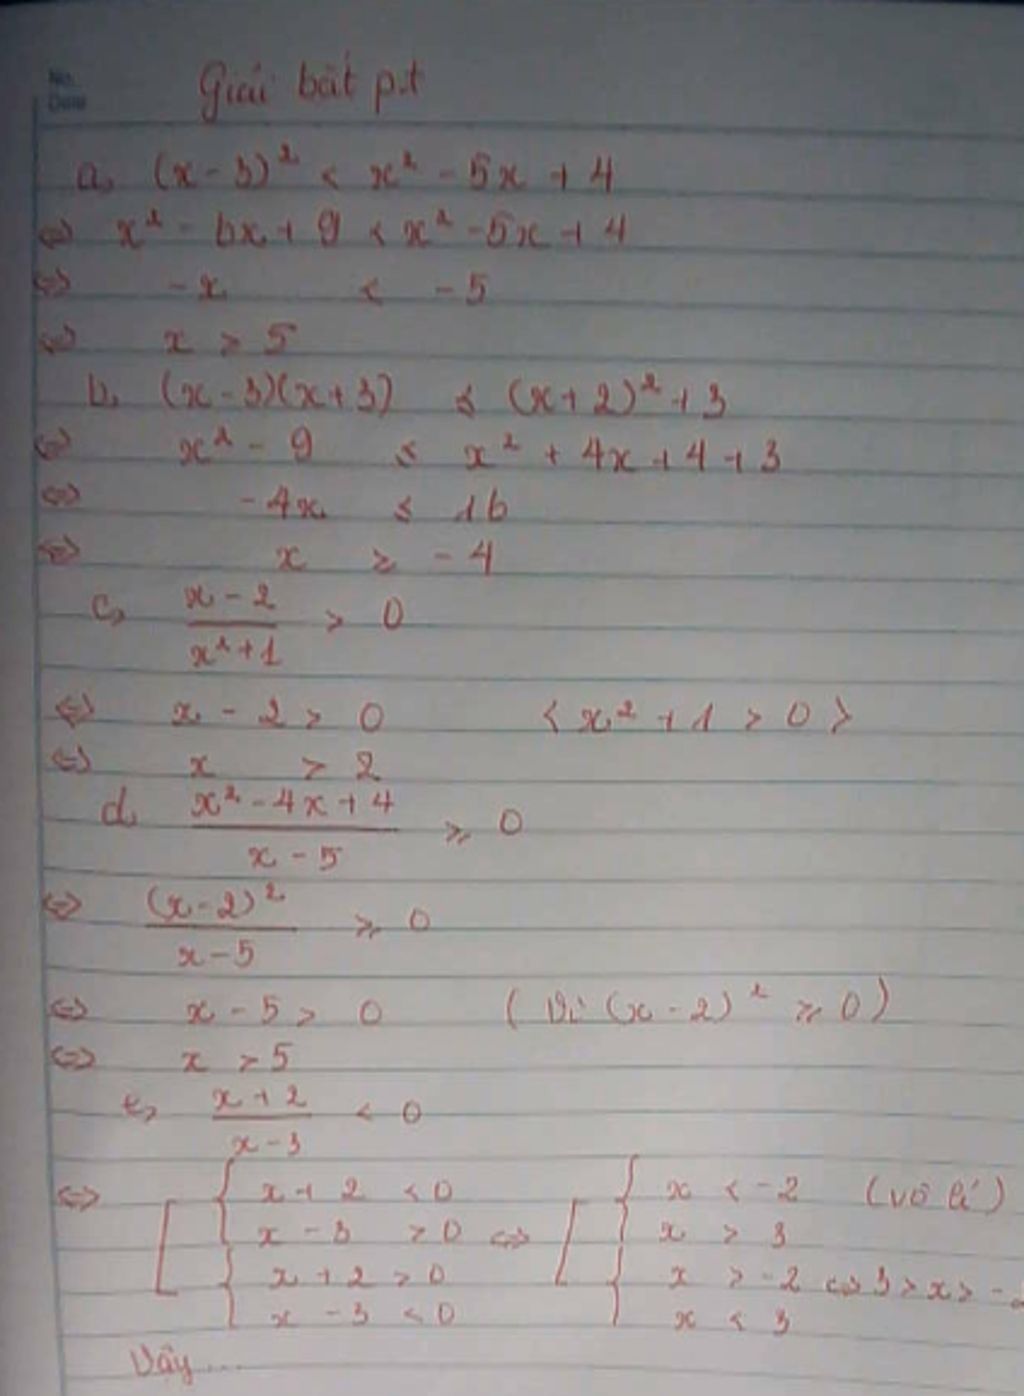 No.
Date
Giải bất p.t
a, (x-3)² < x² - 5x + 4
⇔ x² - 6x + 9 < x² - 5x + 4
⇔ -x < -5
⇔ x > 5
b, (x-3)(x+3) ≤ (x+2)² + 3
⇔ x² - 9 ≤ x² + 4x + 4 + 3
⇔ -4x ≤ 16
⇔ x ≥ -4
c, (x-2)/(x²+1) > 0
⇔ x - 2 > 0 < x² + 1 > 0 >
⇔ x > 2
d, (x² - 4x + 4)/(x - 5) ≥ 0
⇔ (x-2)²/(x-5) ≥ 0
⇔ x - 5 > 0 (Vì (x-2)² ≥ 0)
⇔ x > 5
e, (x+2)/(x-3) < 0
⇔ [ { x + 2 < 0 [ { x < -2 (vô lí)
x - 3 > 0 ⇔ x > 3
{ x + 2 > 0 { x > -2 ⇔ 3 > x > -2
x - 3 < 0 x < 3
Vậy ....